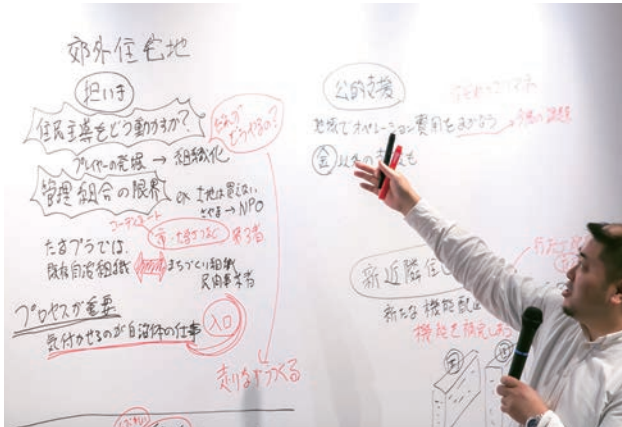 郊外住宅地
担い手
住民主導をどう動かすか?
プレイヤーの発掘 → 組織化
管理組合の限界
ex 土地は買えない
→ NPO
コーディネート
第3者
たまプラでは、
既存自治組織 ⟷ まちづくり組織
民間事業者
プロセスが重要
気付かせるのが自治体の仕事
入口
だれがどうやるの?
走りながらつくる
公的支援
地域でオペレーション費用をまかなう
今後の課題
新近隣住
新たな機能配
機能を補完しあう